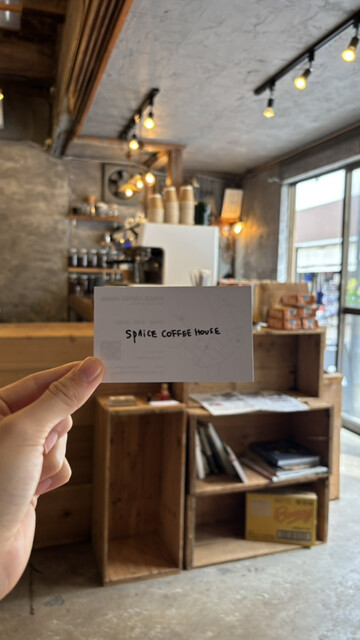 SPAICE COFFEE HOUSE